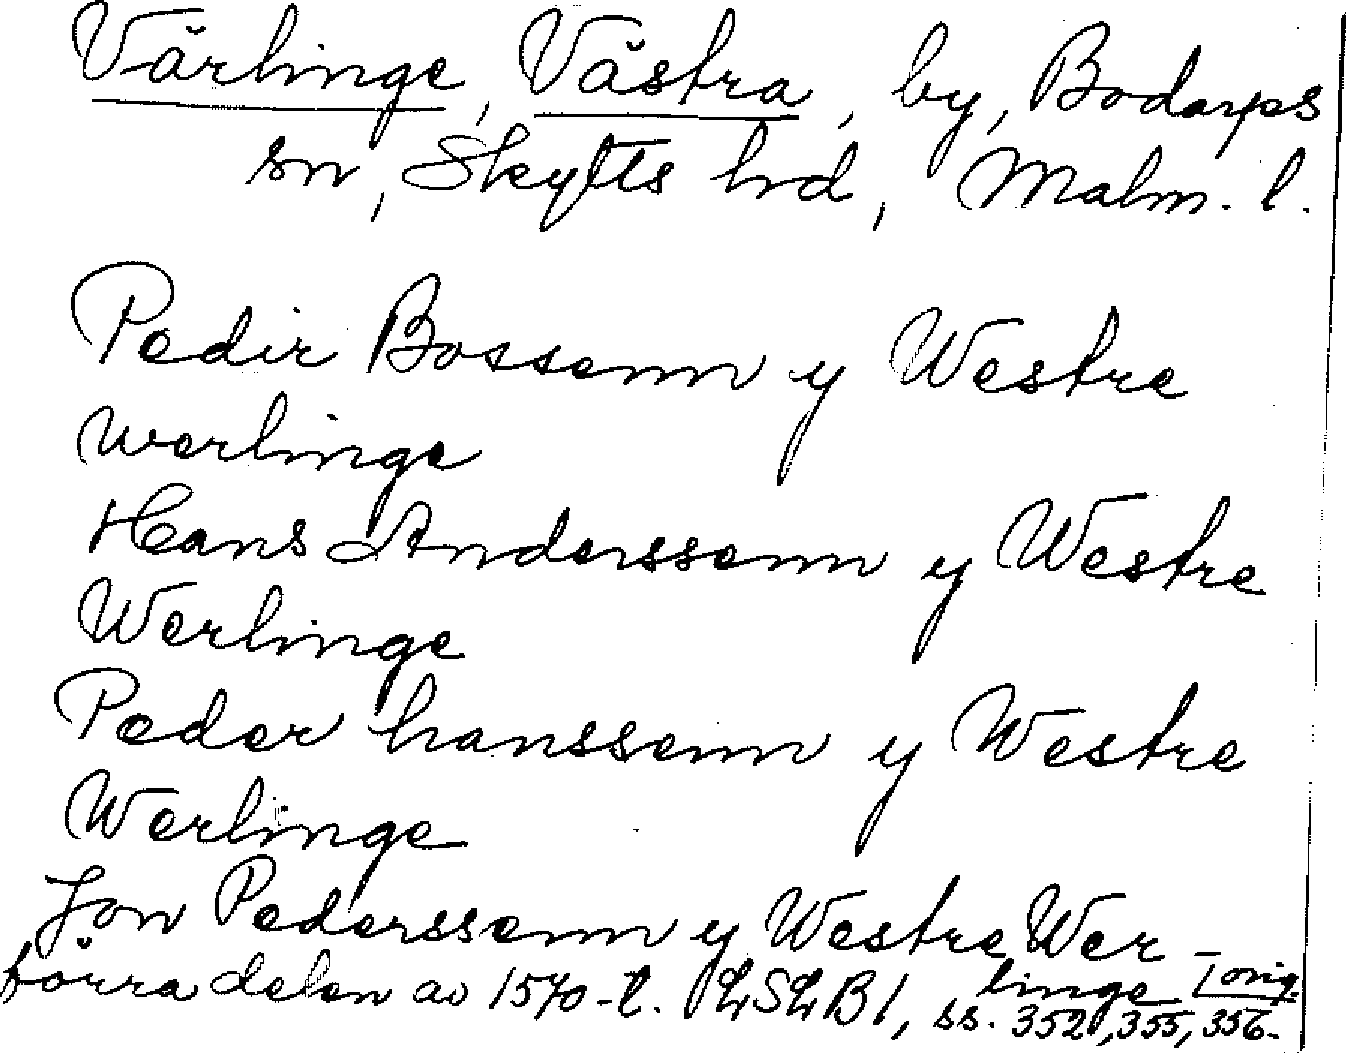 Värlinge, Västra, by, Bodarps
sn, Skytts hd, Malm. l.
Pedir Bossenn y Westre
werlinge
Hans Anderssenn y Westre
Werlinge
Peder hanssenn y Westre
Werlinge
Jon Pederssenn y Westre Wer-
linge [orig.
förra delen av 1570-t. LSLB1, ss. 352, 355, 356.